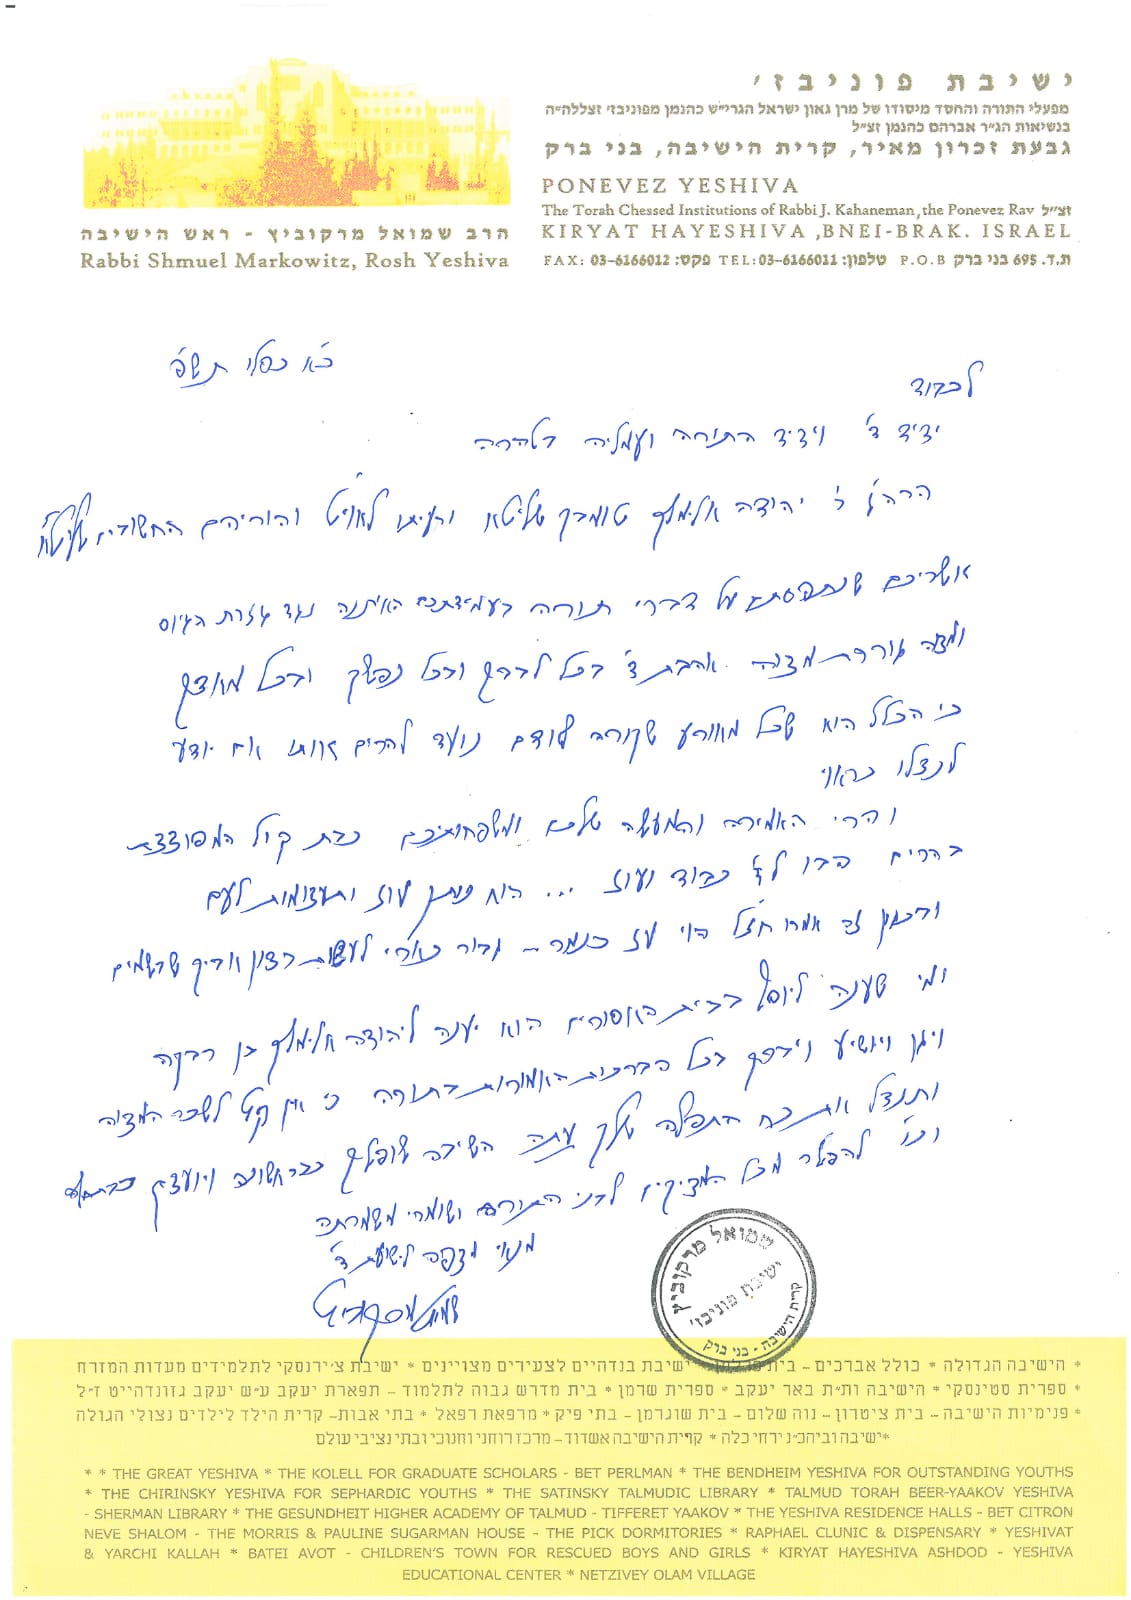 ישיבת פוניבז׳
מפעלי התורה והחסד מיסודו של מרן גאון ישראל הגרי״ש כהנמן מפוניבז׳ זצללה״ה
בנשיאות הג״ר אברהם כהנמן זצ״ל
גבעת זכרון מאיר, קרית הישיבה, בני ברק
PONEVEZ YESHIVA
The Torah Chessed Institutions of Rabbi J. Kahaneman, the Ponevez Rav זצ״ל
KIRYAT HAYESHIVA ,BNEI-BRAK. ISRAEL
FAX: 03-6166012 פקס: TEL:03-6166011 טלפון: P.O.B ת.ד. 695 בני ברק
הרב שמואל מרקוביץ - ראש הישיבה
Rabbi Shmuel Markowitz, Rosh Yeshiva
כ״א כסלו תש״פ
לכבוד
ידיד ד׳ וידיד התורה ועמליה בטהרה
הרה״ג ר׳ יהודה אלימלך שליט״א והוריהם החשובים שליט״א
אשריכם שנתפסתם על דברי תורה בעמידתכם האיתנה נגד גזרת הגיוס
ומצוה גוררת מצוה אהבת ד׳ בכל לבבך ובכל נפשך ובכל מאודך
כי הכלל הוא שכל מאורע שקורה לאדם נועד להרים אותו אם יודע
לנצלו כראוי
והרי האמירה והמעשה שלכם ומשפחותיכם כבת קול המפוצצת
בהרים הבו לד׳ כבוד ועוז ... הוא נותן עוז ותעצומות לעם
ובכגון זה אמרו חז״ל הוי עז כנמר - גבור כארי לעשות רצון אביך שבשמים
ומי שענה ליוסף בבית האסורים הוא יענה ליהודה אלימלך בן רבקה
ויגן ויושיע ויברך בכל הברכות האמורות בתורה כי אין קץ לשכר המצוה
ותנצל את כח התפלה שלך עתה השיבה שופטיך כבראשונה ויועציך כבתחילה
וכו׳ להפטר מכל המציקים לבני התורה ושומרי משמרתה
מנאי מצפה לישועת ד׳
שמואל מרקוביץ
שמואל מרקוביץ
ישיבת פוניבז׳
קרית הישיבה - בני ברק
* הישיבה הגדולה * כולל אברכים - בית פרלמן * ישיבת בנדהיים לצעירים מצויינים * ישיבת צ׳ירנסקי לתלמידים מעדות המזרח
* ספרית סטינסקי * הישיבה ות״ת באר יעקב * ספרית שרמן * בית מדרש גבוה לתלמוד - תפארת יעקב ע״ש יעקב גזונדהייט ז״ל
* פנימיות הישיבה - בית ציטרון - נוה שלום - בית שוגרמן - בתי פיק * מרפאת רפאל * בתי אבות - קרית הילד לילדים נצולי הגולה
*ישיבה וביהכ״נ ירחי כלה * קרית הישיבה אשדוד - מרכז רוחני וחנוכי ובתי נציבי עולם
* * THE GREAT YESHIVA * THE KOLELL FOR GRADUATE SCHOLARS - BET PERLMAN * THE BENDHEIM YESHIVA FOR OUTSTANDING YOUTHS
* THE CHIRINSKY YESHIVA FOR SEPHARDIC YOUTHS * THE SATINSKY TALMUDIC LIBRARY * TALMUD TORAH BEER-YAAKOV YESHIVA
- SHERMAN LIBRARY * THE GESUNDHEIT HIGHER ACADEMY OF TALMUD - TIFFERET YAAKOV * THE YESHIVA RESIDENCE HALLS - BET CITRON
NEVE SHALOM - THE MORRIS & PAULINE SUGARMAN HOUSE - THE PICK DORMITORIES * RAPHAEL CLUNIC & DISPENSARY * YESHIVAT
& YARCHI KALLAH * BATEI AVOT - CHILDREN'S TOWN FOR RESCUED BOYS AND GIRLS * KIRYAT HAYESHIVA ASHDOD - YESHIVA
EDUCATIONAL CENTER * NETZIVEY OLAM VILLAGE